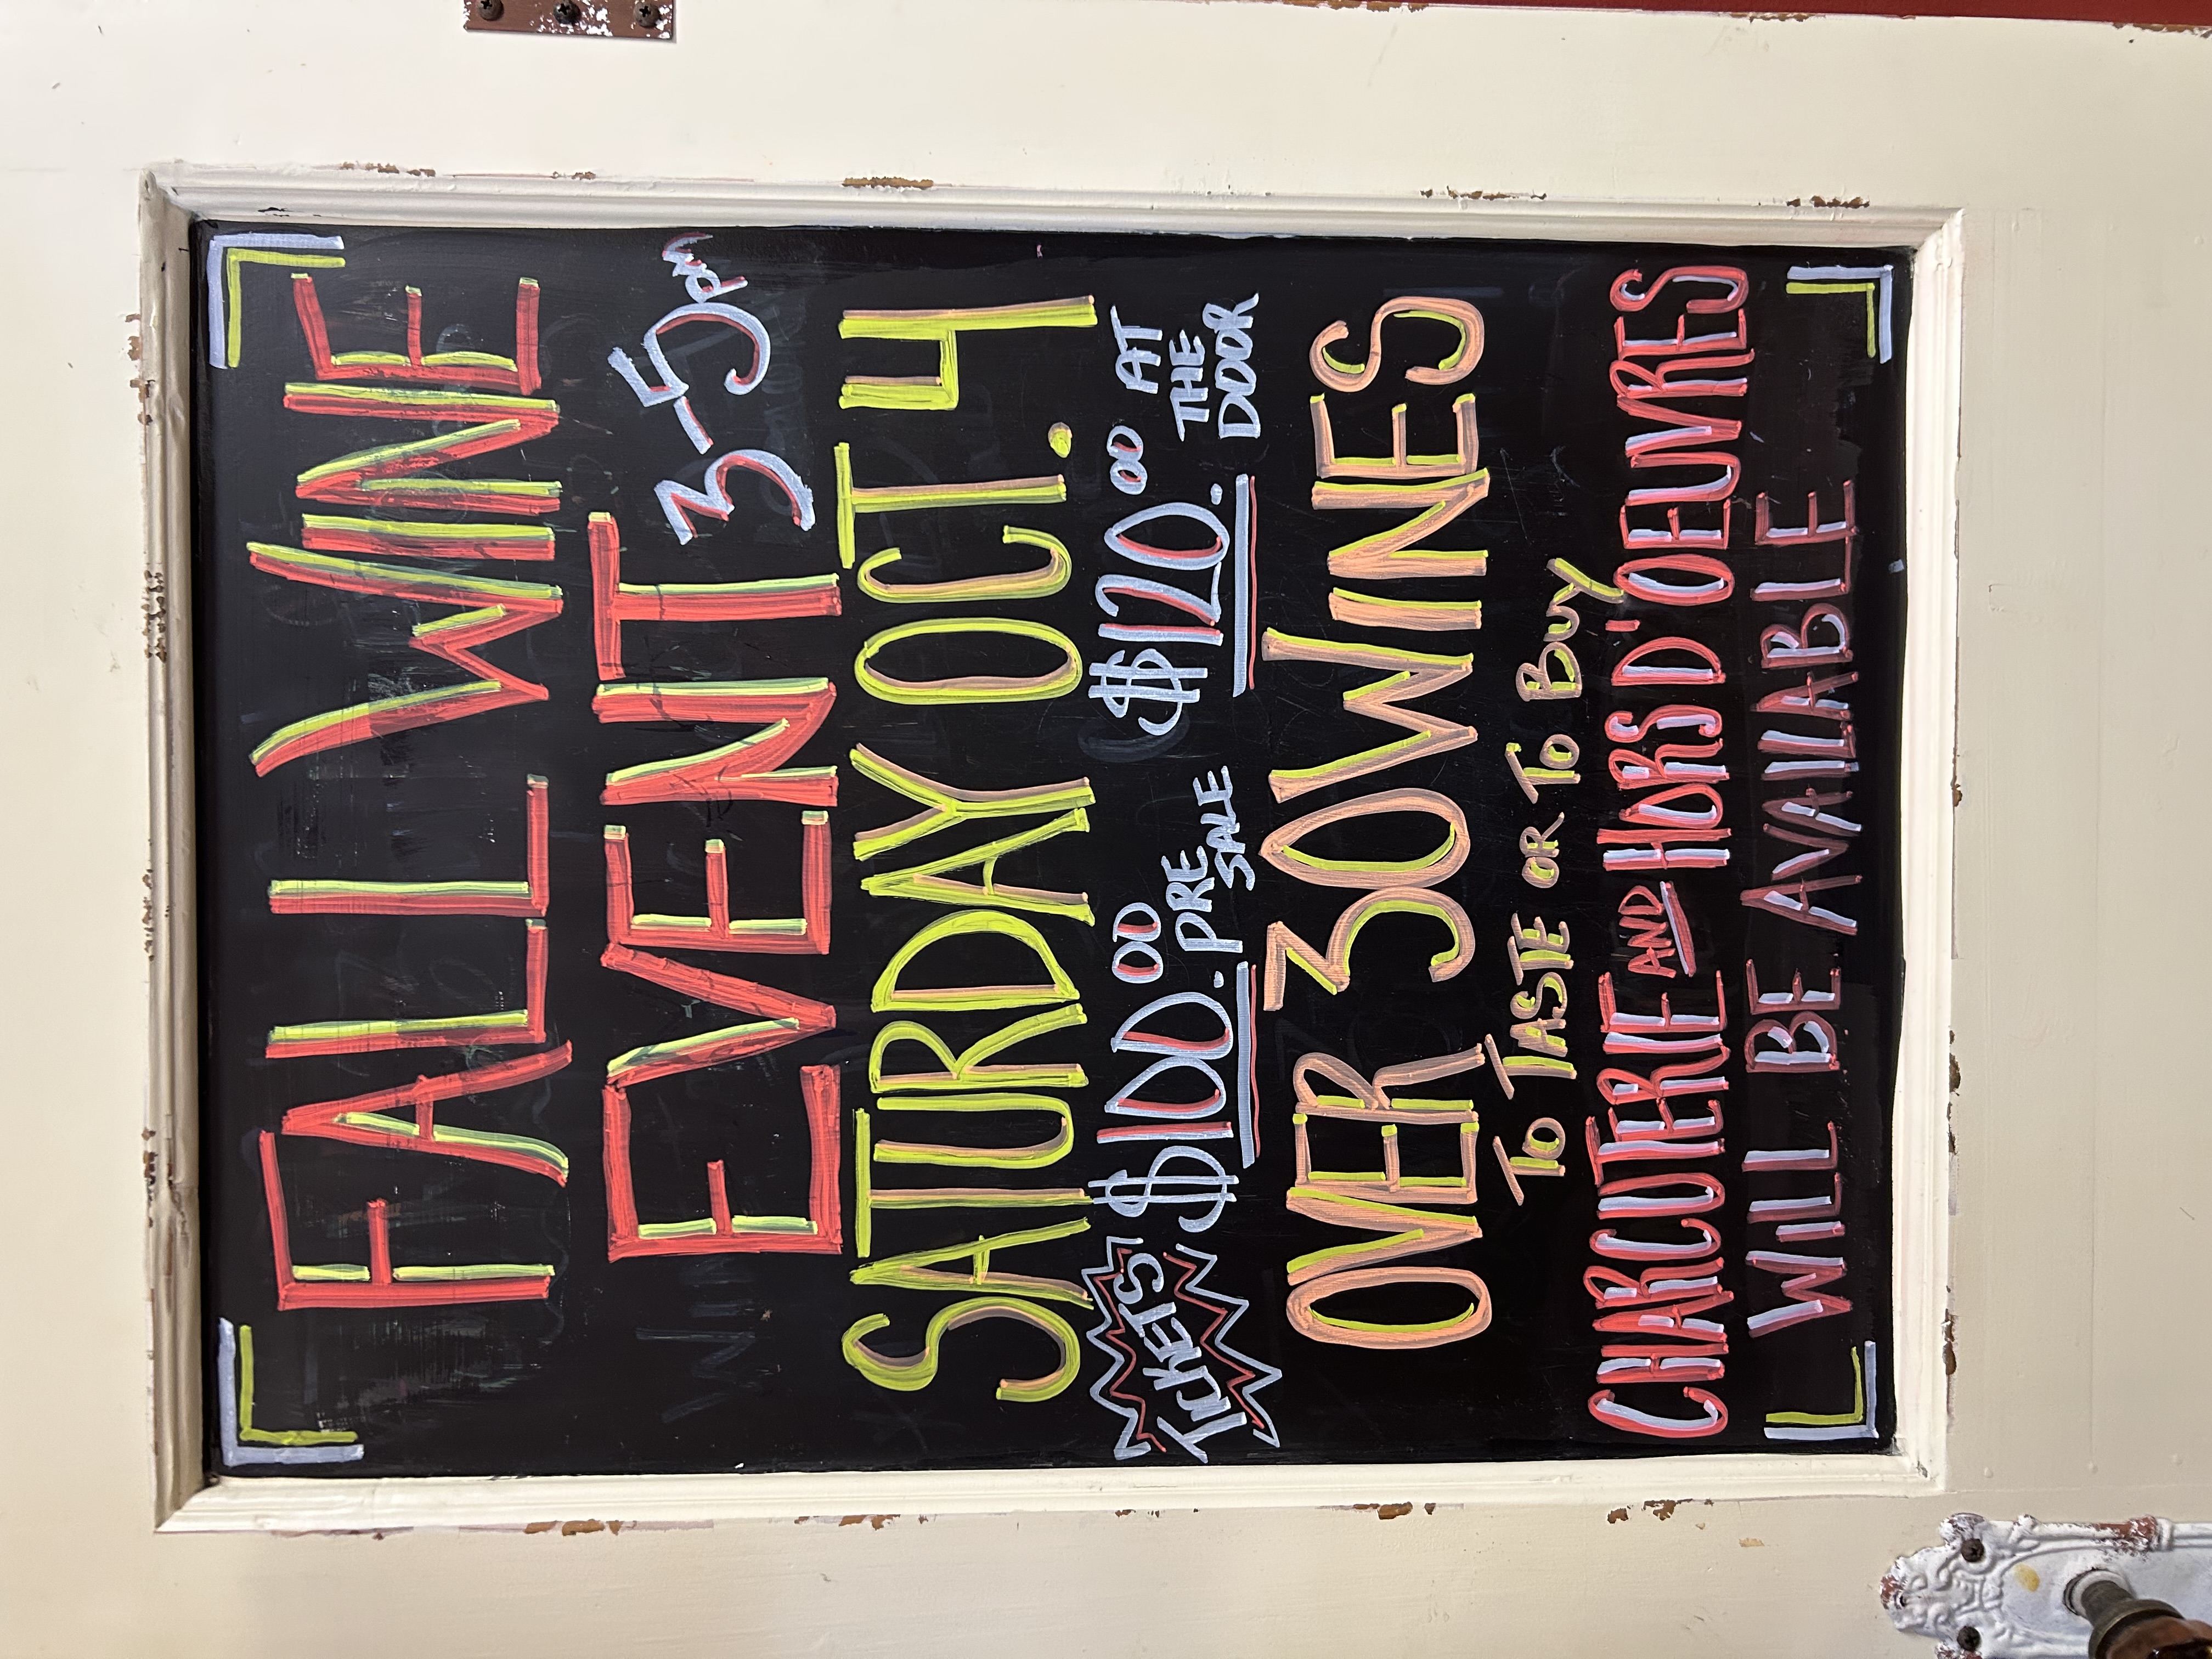 FALL WINE
EVENT 3-5pm
SATURDAY OCT. 4
TICKETS $100.00 PRE SALE $120.00 AT THE DOOR
OVER 30 WINES
TO TASTE OR TO BUY
CHARCUTERIE AND HORS D'OEUVRES
WILL BE AVAILABLE